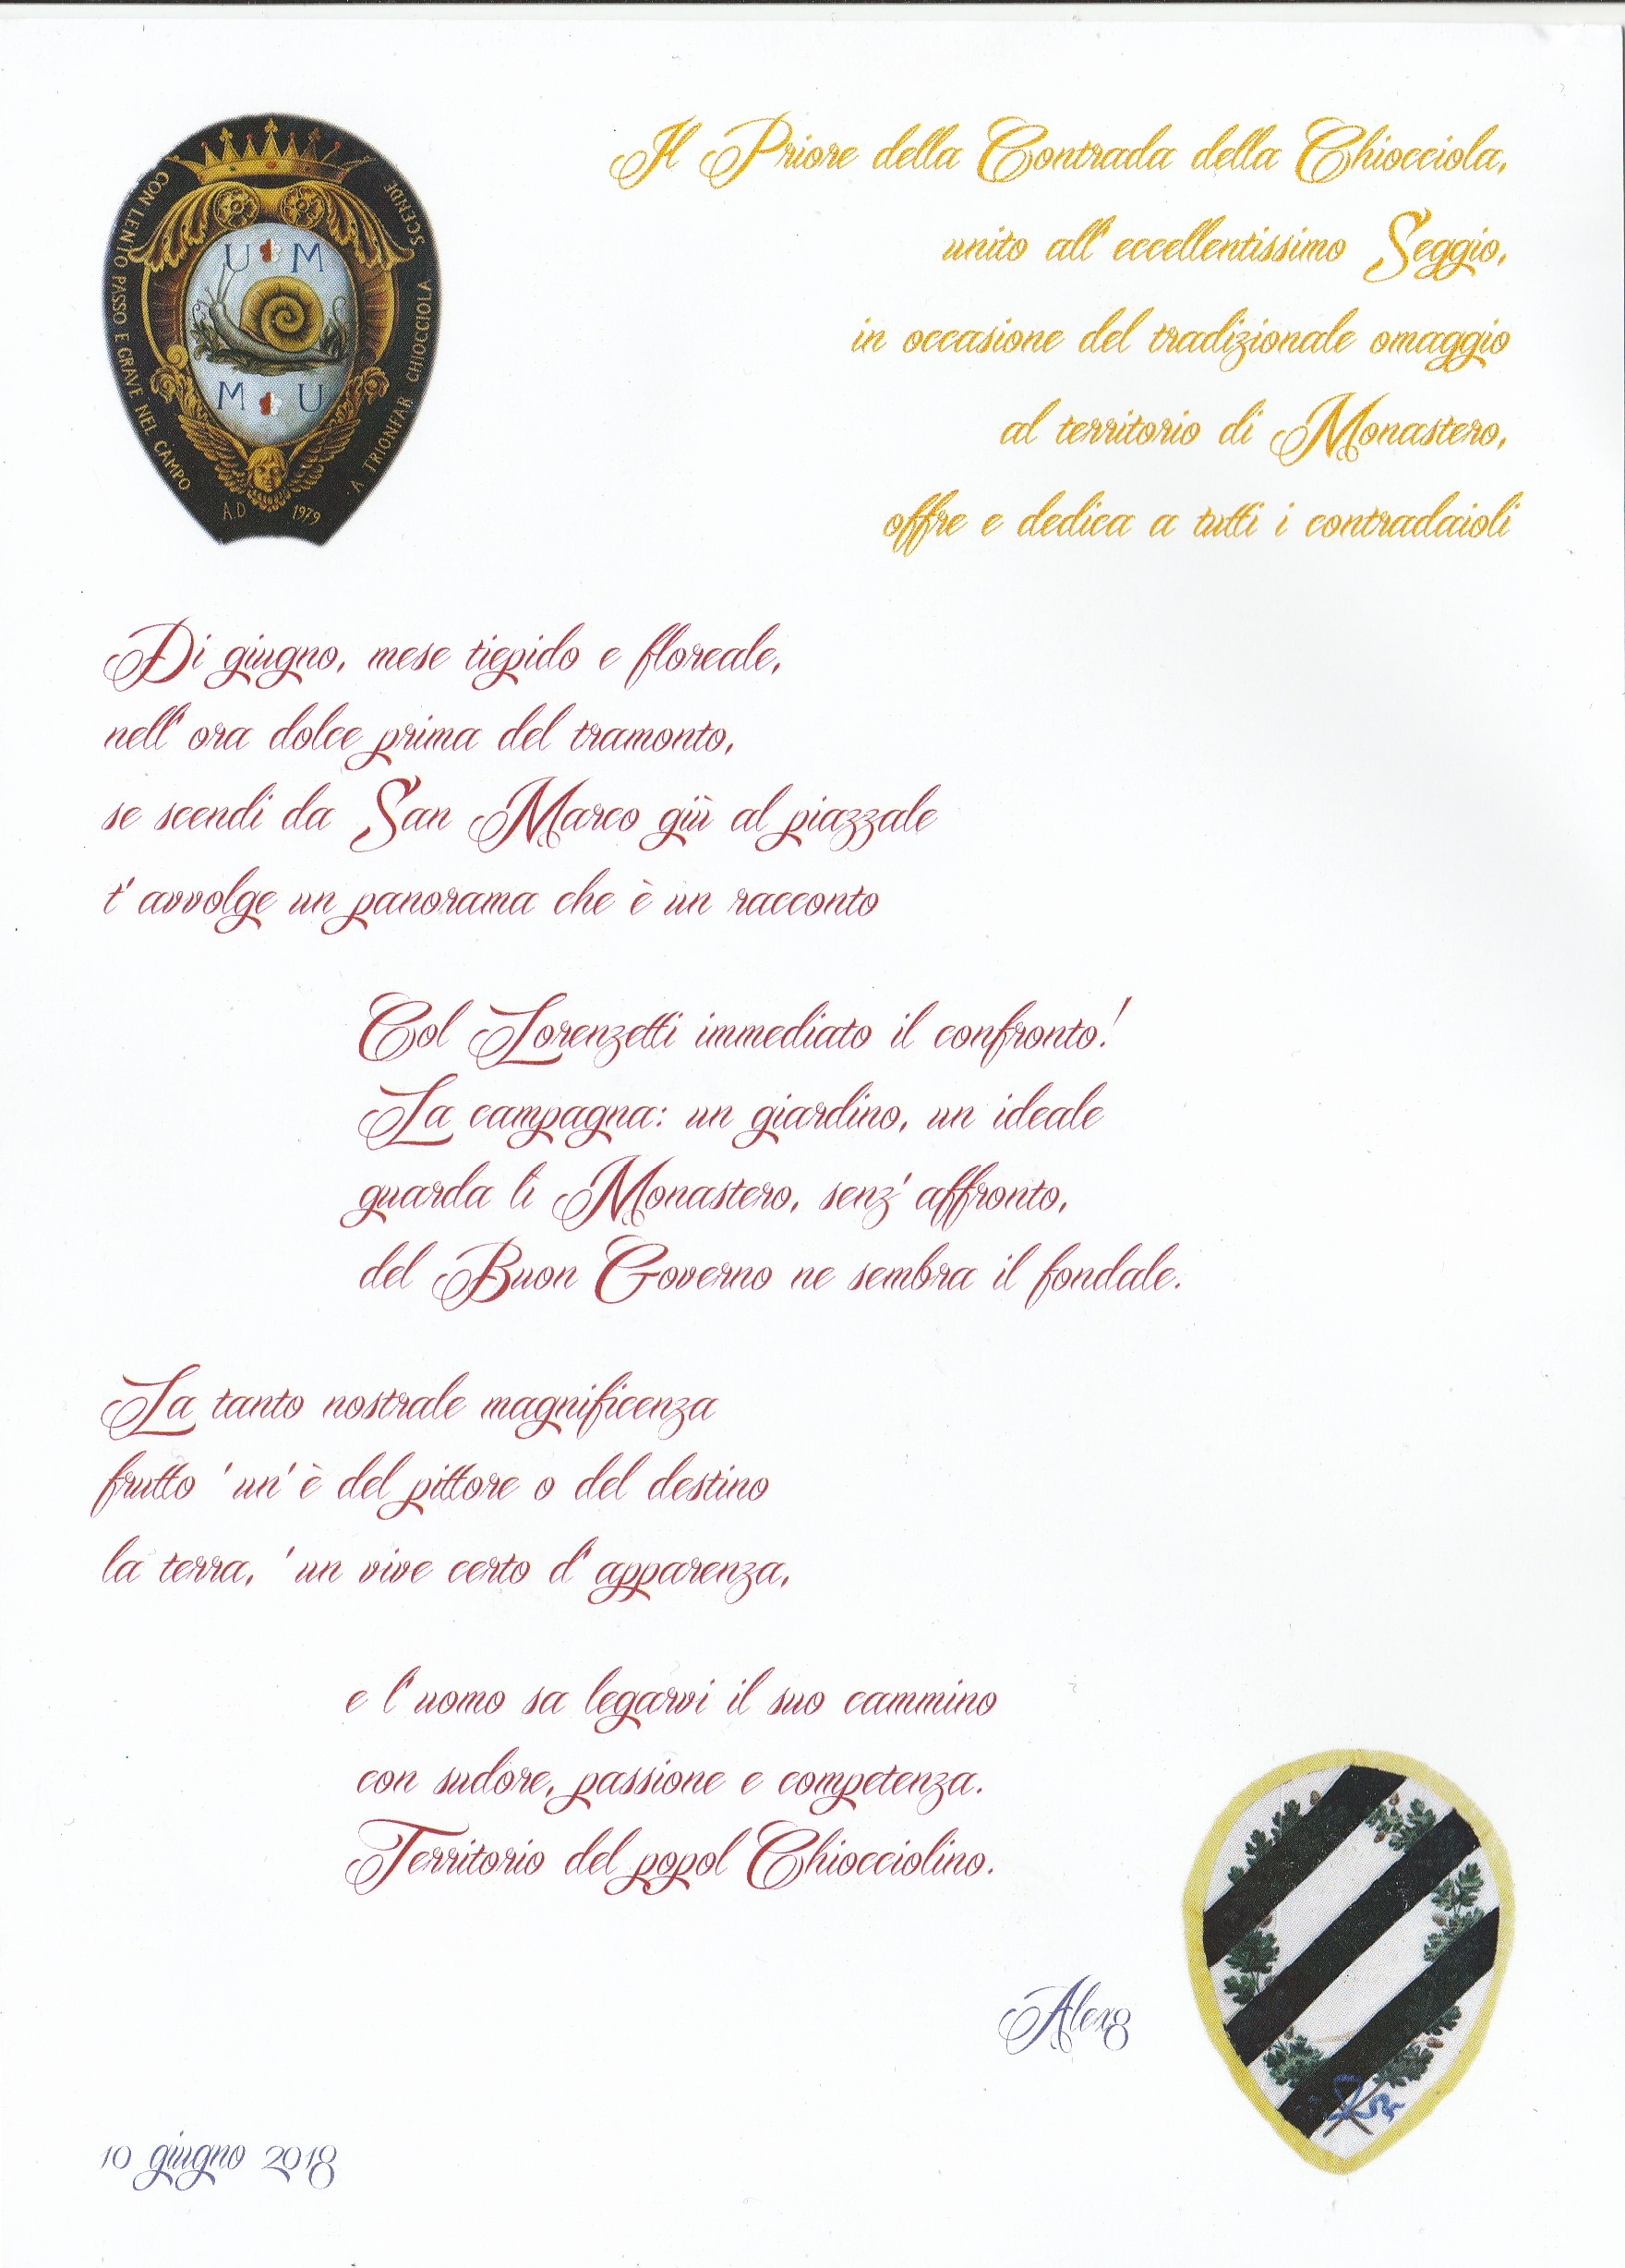 CON LENTO PASSO E GRAVE NEL CAMPO
SCENDE
A TRIONFAR CHIOCCIOLA
U M
M U
A.D 1979
Il Priore della Contrada della Chiocciola,
unito all'eccellentissimo Seggio,
in occasione del tradizionale omaggio
al territorio di Monastero,
offre e dedica a tutti i contradaioli
Di giugno, mese tiepido e floreale,
nell'ora dolce prima del tramonto,
se scendi da San Marco giù al piazzale
t'avvolge un panorama che è un racconto
Col Lorenzetti immediato il confronto!
La campagna: un giardino, un ideale
guarda lì Monastero, senz'affronto,
del Buon Governo ne sembra il fondale.
La tanto nostrale magnificenza
frutto 'un'è del pittore o del destino
la terra, 'un vive certo d'apparenza,
e l'uomo sa legarvi il suo cammino
con sudore, passione e competenza.
Territorio del popol Chiocciolino.
Alex8
10 giugno 2018